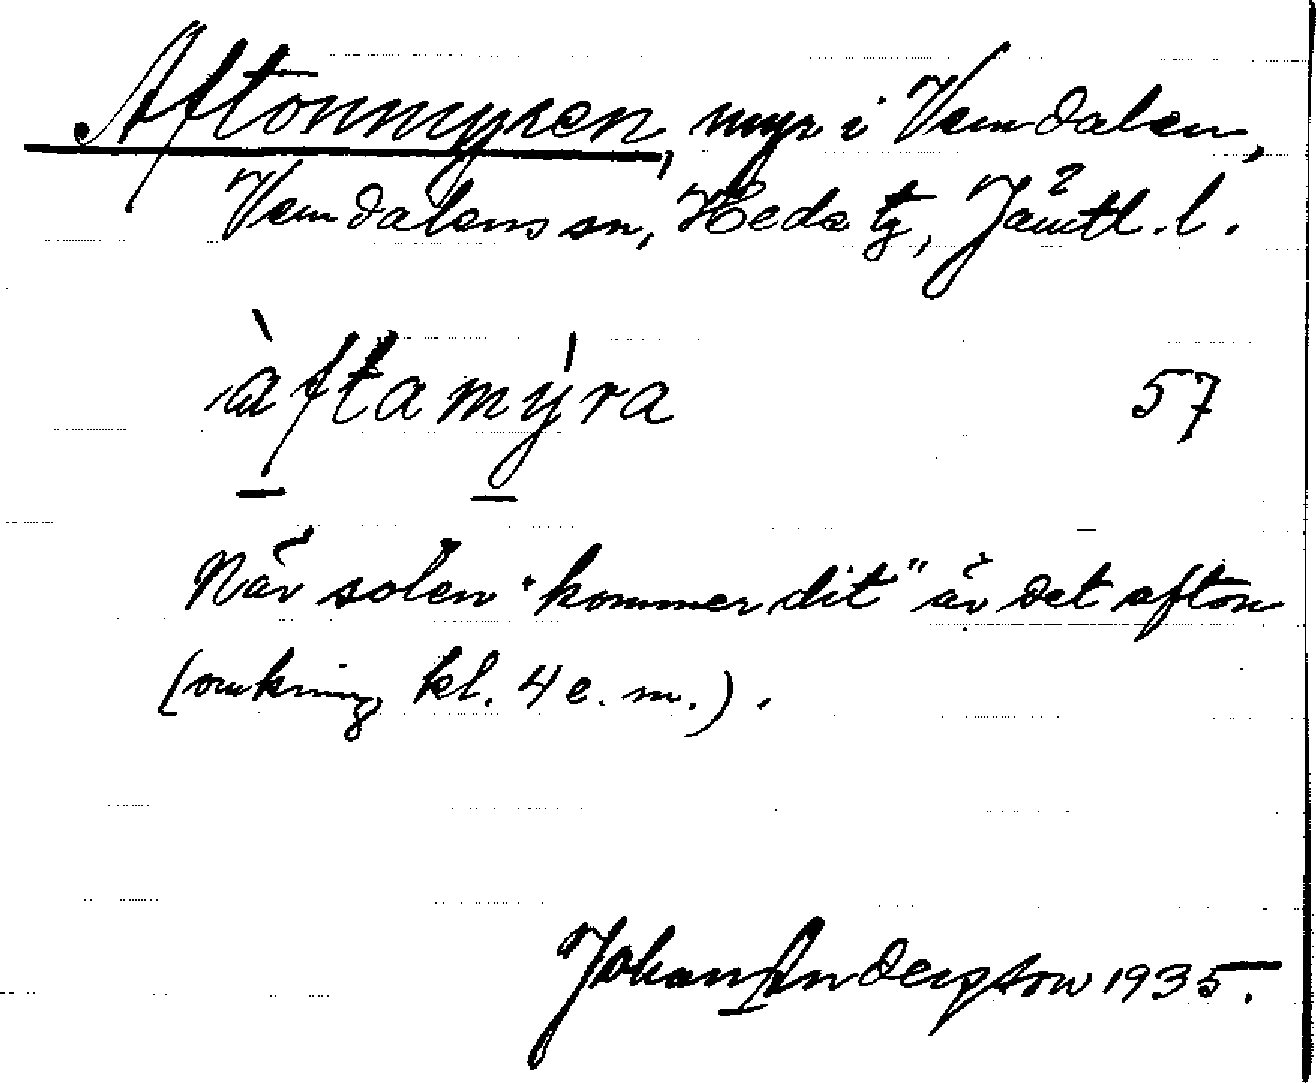 Aftonmyren, myr i Vemdalen,
Vemdalens sn, Hede tg, Jämtl. l.
àftamy̍ra 57
När solen "kommer dit" är det afton
(omkring kl. 4 e. m.).
Johan Andersson 1935.